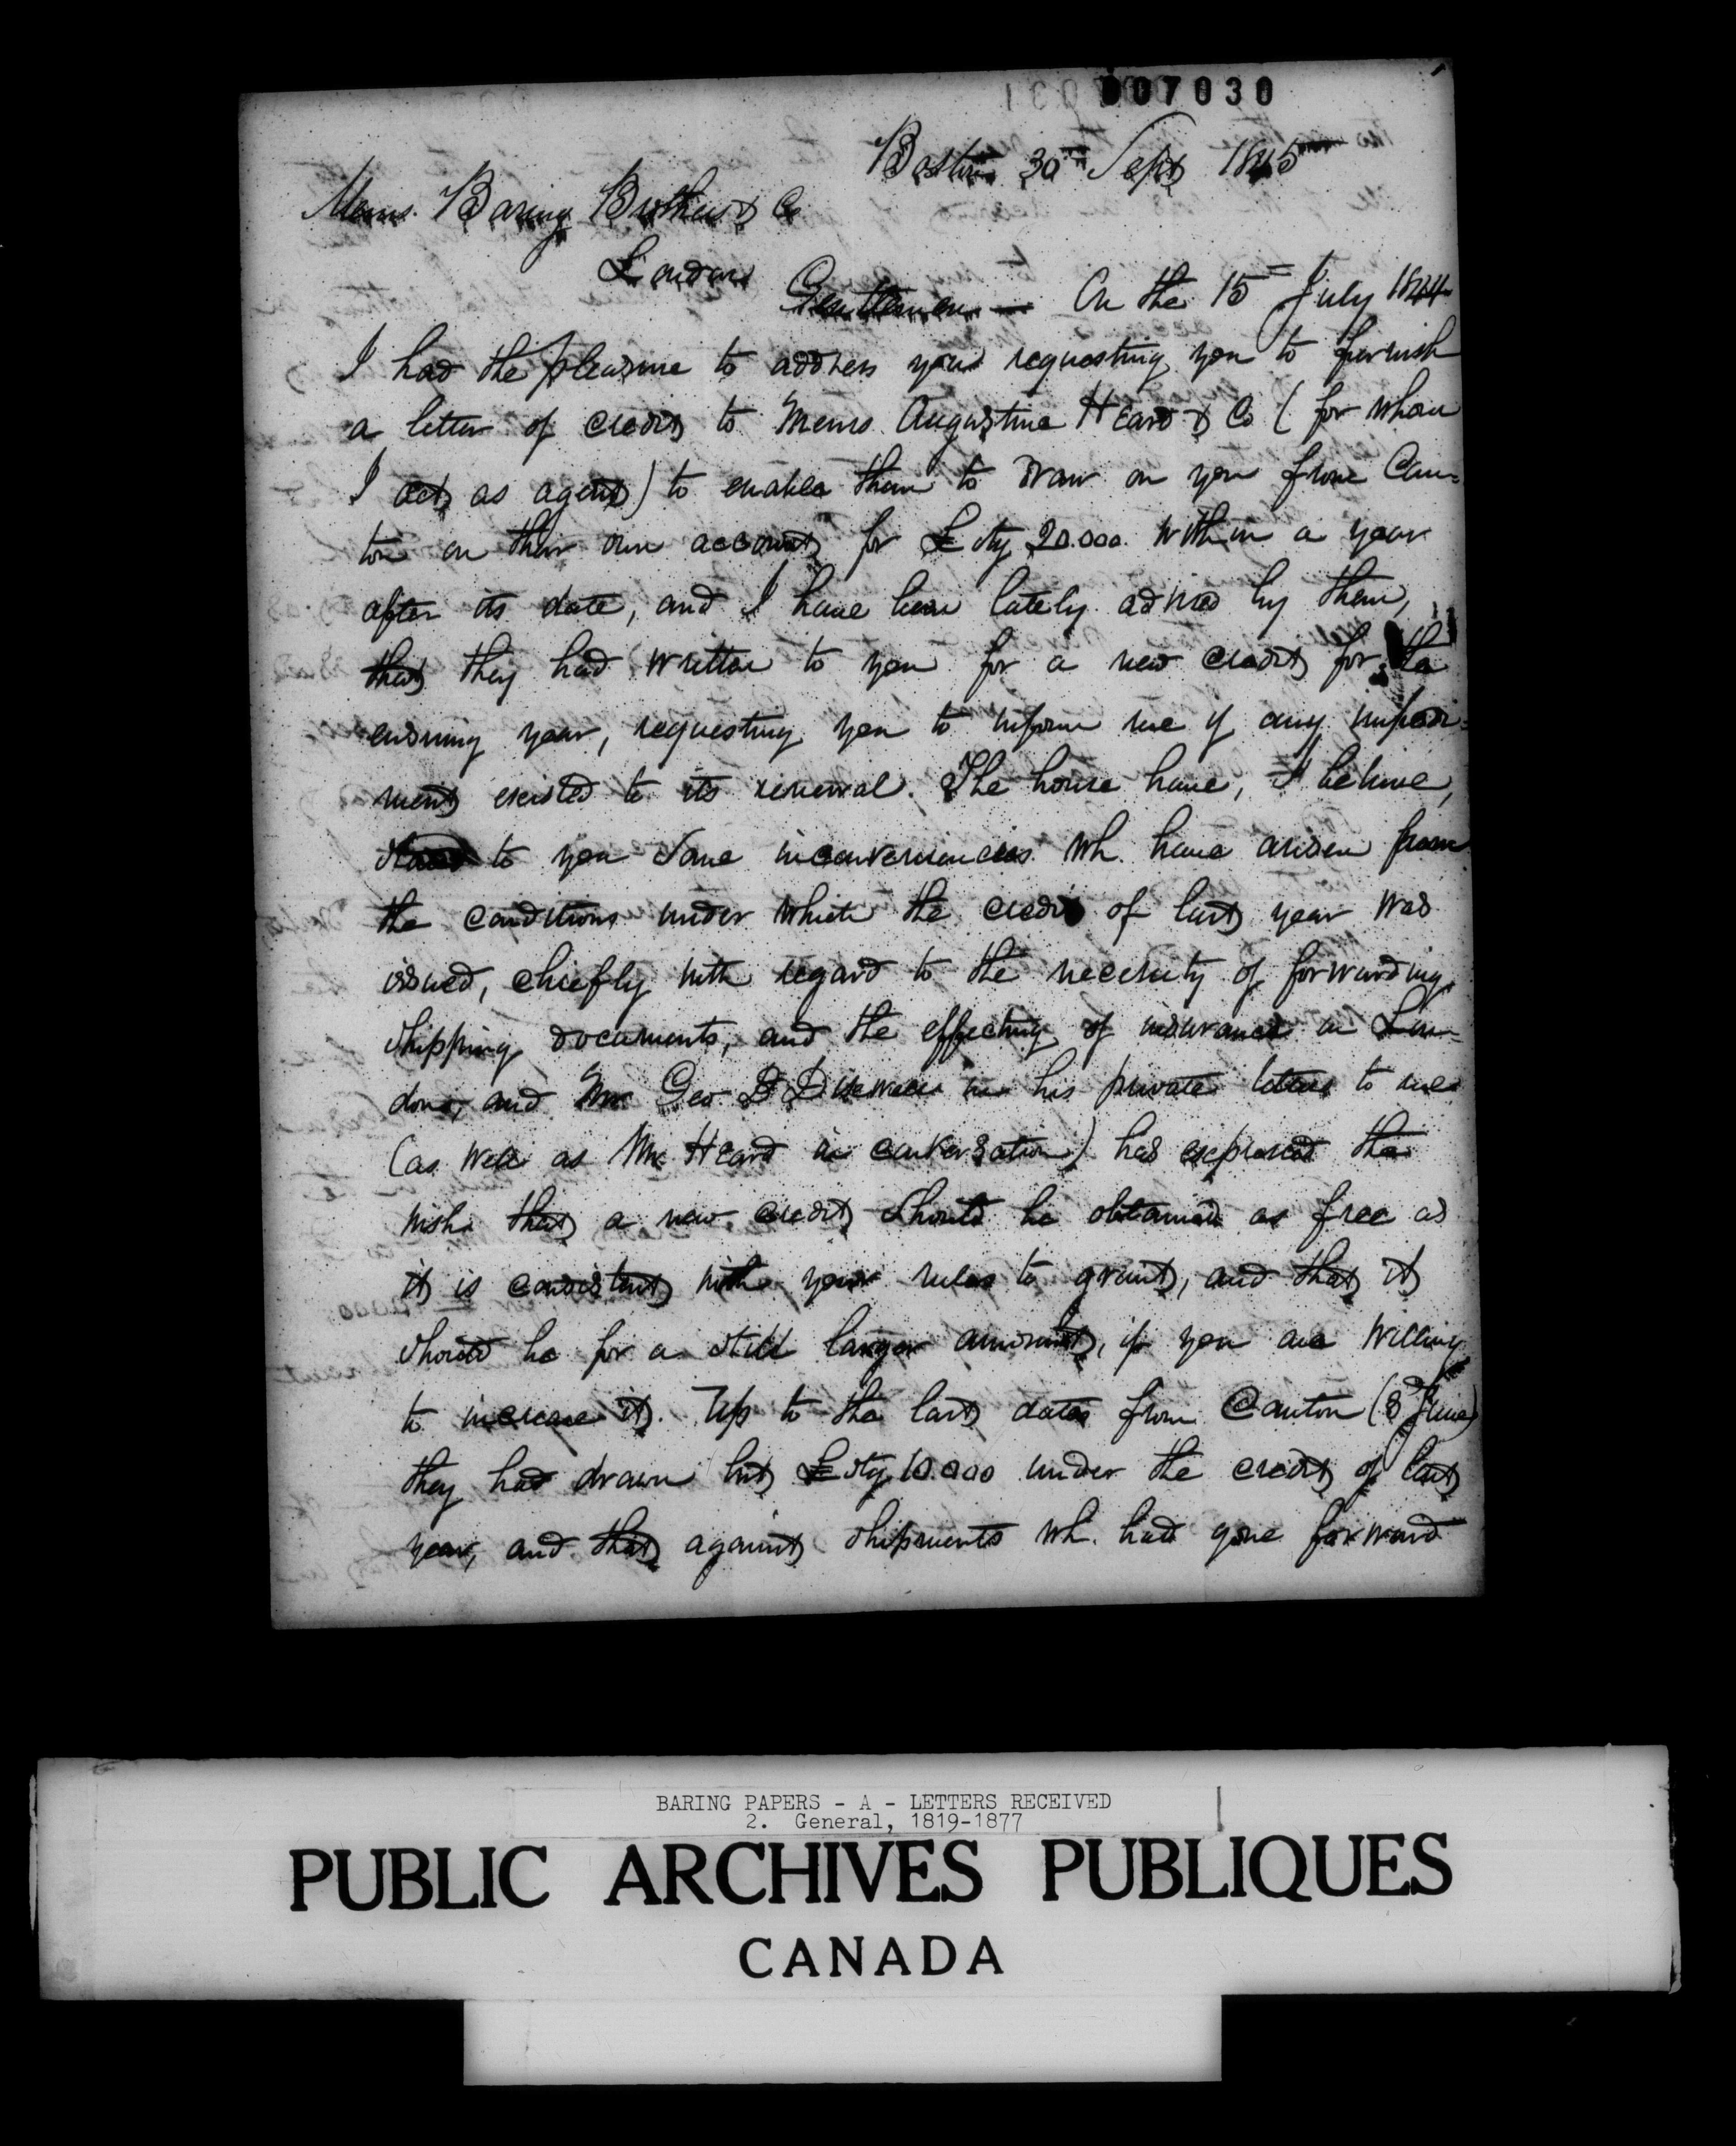 007030
Boston 30th Sept 1845
Messrs. Baring Brothers & Co
London
Gentlemen — On the 15th July 1844
I had the pleasure to address you requesting you to furnish
a letter of credit to Messrs Augustine Heard & Co (for whom
I act as agent) to enable them to draw on you from Can=
ton on their own account for £ stg 20.000 within a year
after its date, and I have been lately advised by them,
that they had written to you for a new credit for the
ensuing year, requesting you to inform me if any impedi=
ment existed to its renewal. The house have, I believe,
stated to you some inconveniencies wh. have arisen from
the conditions under which the credit of last year was
issued, chiefly with regard to the necessity of forwarding
shipping documents, and the effecting of insurance in Lon=
don, and Mr Geo B Dixwell in his private letters to me
(as well as Mr Heard in conversation) has expressed the
wish that a new credit should be obtained as free as
it is consistent with your rules to grant, and that it
should be for a still larger amount, if you are willing
to increase it. Up to the last dates from Canton (8 June)
they had drawn but £ stg 10.000 under the credit of last
year, and that against shipments wh. had gone forward
BARING PAPERS - A - LETTERS RECEIVED
2. General, 1819-1877
PUBLIC ARCHIVES PUBLIQUES
CANADA